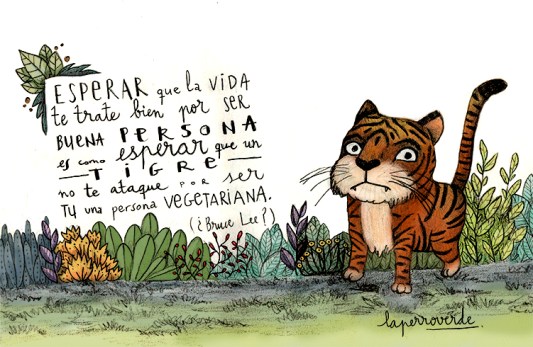 ESPERAR que la VIDA
te trate bien por SER
BUENA PERSONA
es como esperar que un
TIGRE
no te ataque POR ser
TÚ una persona VEGETARIANA.
(¿Bruce Lee?)
laperroverde.